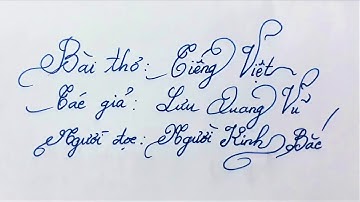 Bài thơ: Tiếng Việt
Tác giả: Lưu Quang Vũ
Người đọc: Người Kinh Bắc